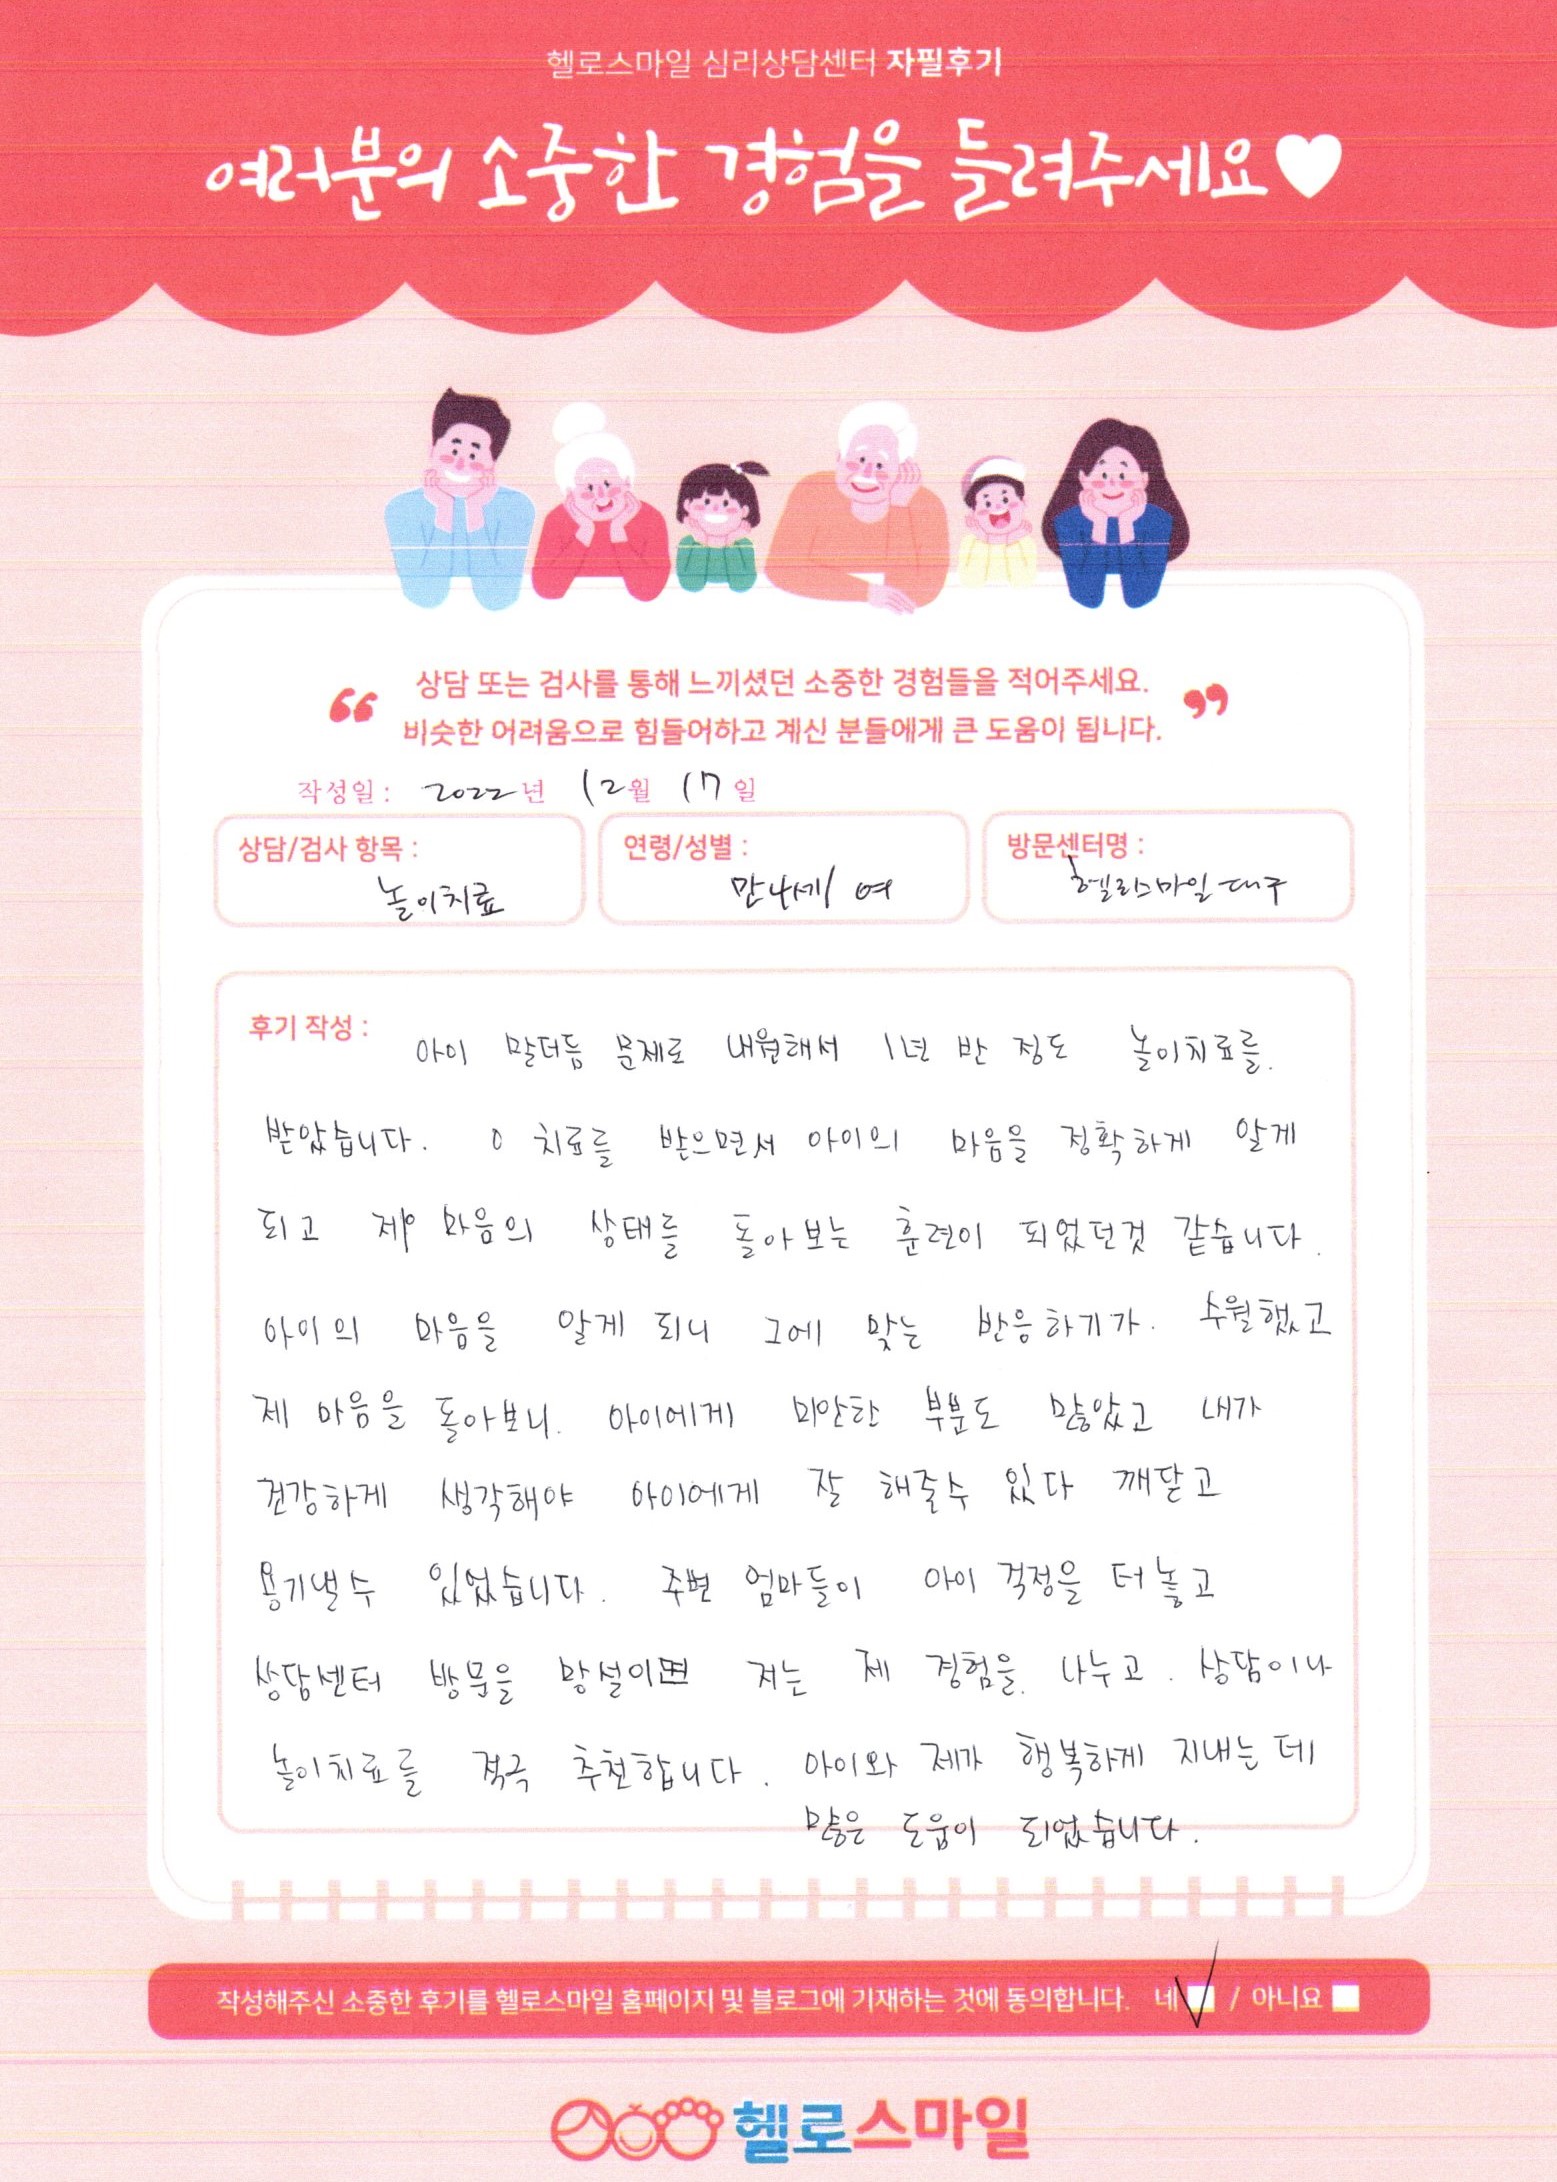 헬로스마일 심리상담센터 자필후기
여러분의 소중한 경험을 들려주세요♥
“ 상담 또는 검사를 통해 느끼셨던 소중한 경험들을 적어주세요. ”
비슷한 어려움으로 힘들어하고 계신 분들에게 큰 도움이 됩니다.
작성일 : 2022년 12월 17일
상담/검사 항목 : 연령/성별 : 방문센터명 :
놀이치료 만4세/ 여 헬로스마일 대구
후기 작성 : 아이 말더듬 문제로 내원해서 1년 반 정도 놀이치료를.
받았습니다. 이 치료를 받으면서 아이의 마음을 정확하게 알게
되고 제 마음의 상태를 돌아보는 훈련이 되었던것 같습니다.
아이의 마음을 알게 되니 그에 맞는 반응하기가. 수월했고
제 마음을 돌아보니. 아이에게 미안한 부분도 많았고 내가
건강하게 생각해야 아이에게 잘 해줄수 있다 깨닫고
용기낼수 있었습니다. 주변 엄마들이 아이 걱정을 터놓고
상담센터 방문을 망설이면 저는 제 경험을. 나누고. 상담이나
놀이치료를 적극 추천합니다. 아이와 제가 행복하게 지내는 데
많은 도움이 되었습니다.
작성해주신 소중한 후기를 헬로스마일 홈페이지 및 블로그에 기재하는 것에 동의합니다. 네 / 아니요
헬로스마일